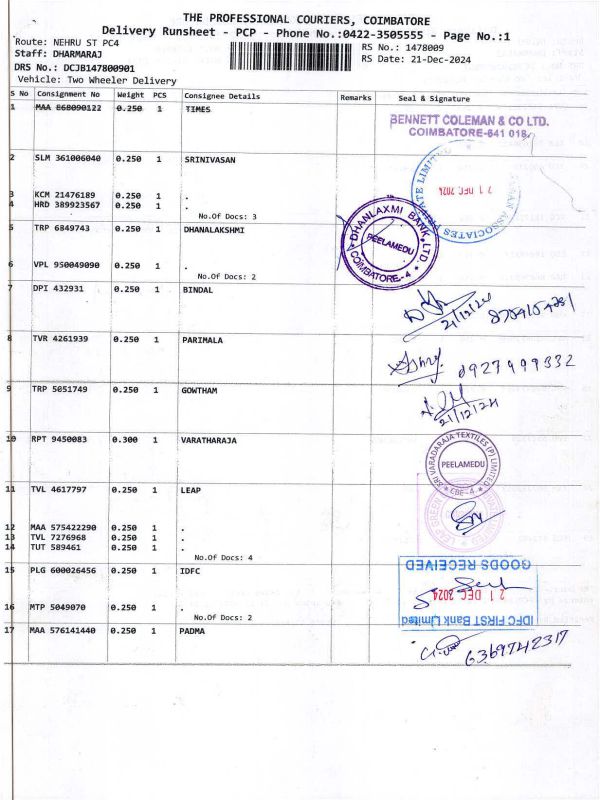 THE PROFESSIONAL COURIERS, COIMBATORE
Delivery Runsheet - PCP - Phone No.:0422-3505555 - Page No.:1
Route: NEHRU ST PC4
RS No.: 1478009
Staff: DHARMARAJ
RS Date: 21-Dec-2024
DRS No.: DCJB147800901
Vehicle: Two Wheeler Delivery
S No Consignment No Weight PCS Consignee Details Remarks Seal & Signature
1 MAA 868090122 0.250 1 TIMES
BENNETT COLEMAN & CO LTD.
COIMBATORE-641 018.
2 SLM 361006040 0.250 1 SRINIVASAN
21 DEC 2024
ASSOCIATES
3 KCM 21476189 0.250 1 .
4 HRD 389923567 0.250 1 .
No.Of Docs: 3
5 TRP 6849743 0.250 1 DHANALAKSHMI
DHANLAXMI BANK LTD.
PEELAMEDU
COIMBATORE-4
6 VPL 950049090 0.250 1 .
No.Of Docs: 2
7 DPI 432931 0.250 1 BINDAL
21/12/24
8 TVR 4261939 0.250 1 PARIMALA
9 TRP 5051749 0.250 1 GOWTHAM
21/12/24
10 RPT 9450083 0.300 1 VARATHARAJA
SRI VARADARAJA TEXTILES (P) LIMITED
PEELAMEDU
CBE-4
11 TVL 4617797 0.250 1 LEAP
LEAP GREEN
12 MAA 575422290 0.250 1 .
13 TVL 7276968 0.250 1 .
14 TUT 589461 0.250 1 .
No.Of Docs: 4
15 PLG 600026456 0.250 1 IDFC
GOODS RECEIVED
21 DEC 2024
IDFC FIRST Bank Limited
16 MTP 5049070 0.250 1 .
No.Of Docs: 2
17 MAA 576141440 0.250 1 PADMA
6369742317